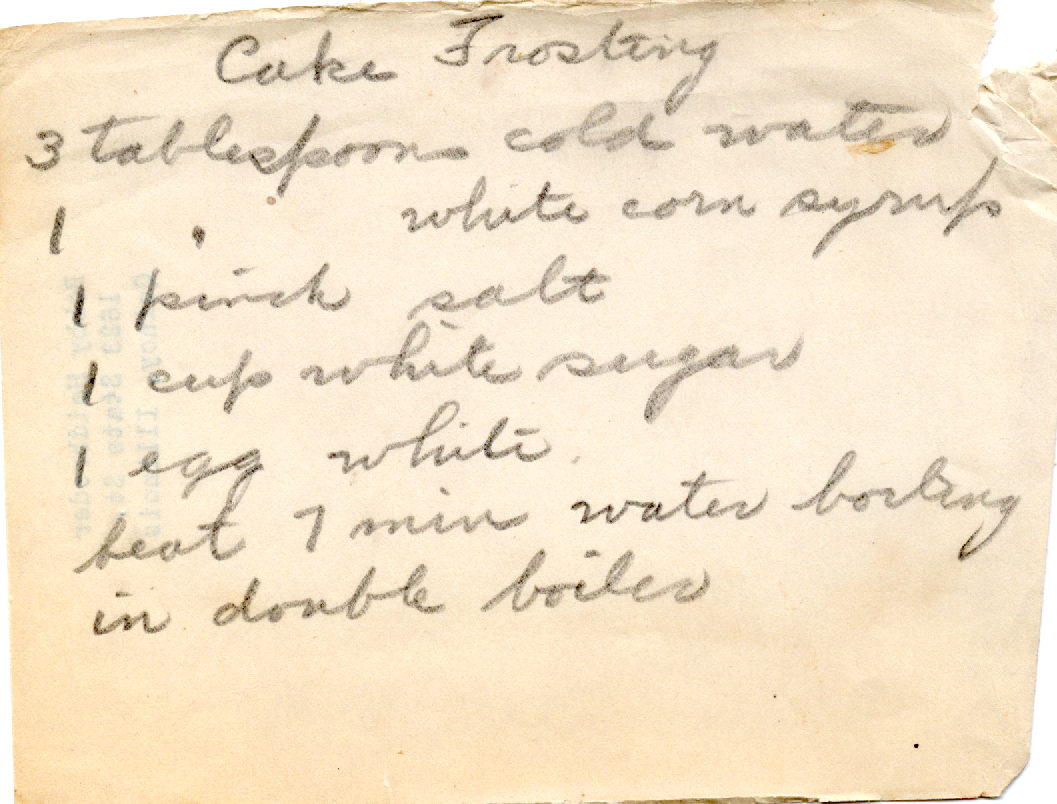 Cake Frosting
3 tablespoons cold water
1 " white corn syrup
1 pinch salt
1 cup white sugar
1 egg white
beat 7 min water boiling
in double boiler
1623 State St.
Quincy, Illinois